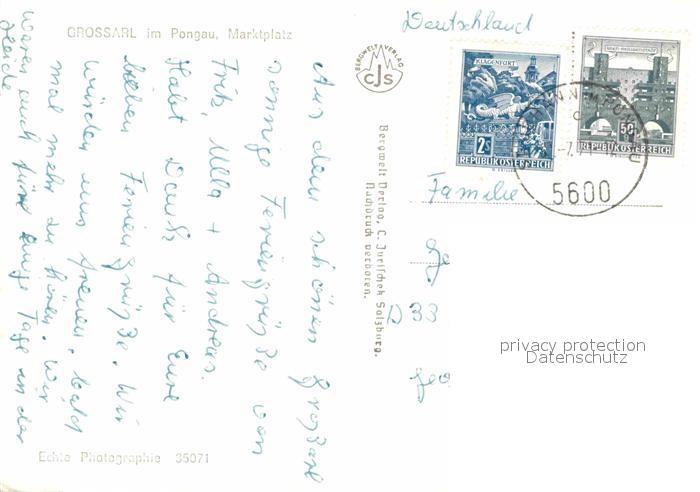 GROSSARL im Pongau, Marktplatz
Aus dem schönen Großarl
sonnige Feriengrüße von
Fritz, Ulla + Andreas.
Habt Dank für Eure
lieben Feriengrüße. Wir
würden uns freuen, bald
mal mehr zu hören. Wir
waren auch für einige Tage in der
Heide.
Echte Photographie 35071
BERGWELT VERLAG
CJS
Bergwelt Verlag, C. Jurischek Salzburg.
Nachdruck verboten.
Deutschland
KLAGENFURT
2 S
REPUBLIK ÖSTERREICH
WIEN-HEILIGENSTADT
50 g
REPUBLIK ÖSTERREICH
5600
Familie
D 33
privacy protection
Datenschutz